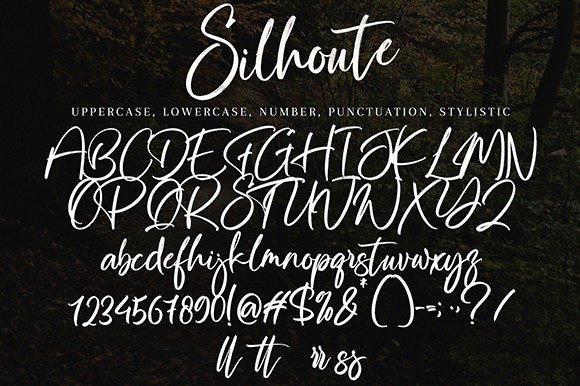 Silhoute
UPPERCASE, LOWERCASE, NUMBER, PUNCTUATION, STYLISTIC
ABCDEFGHIJKLMN
OPQRSTUVWXYZ
abcdefghijklmnopqrstuvwxyz
1234567890!@#$%&*()-=;:.,?/
ll tt rr ss